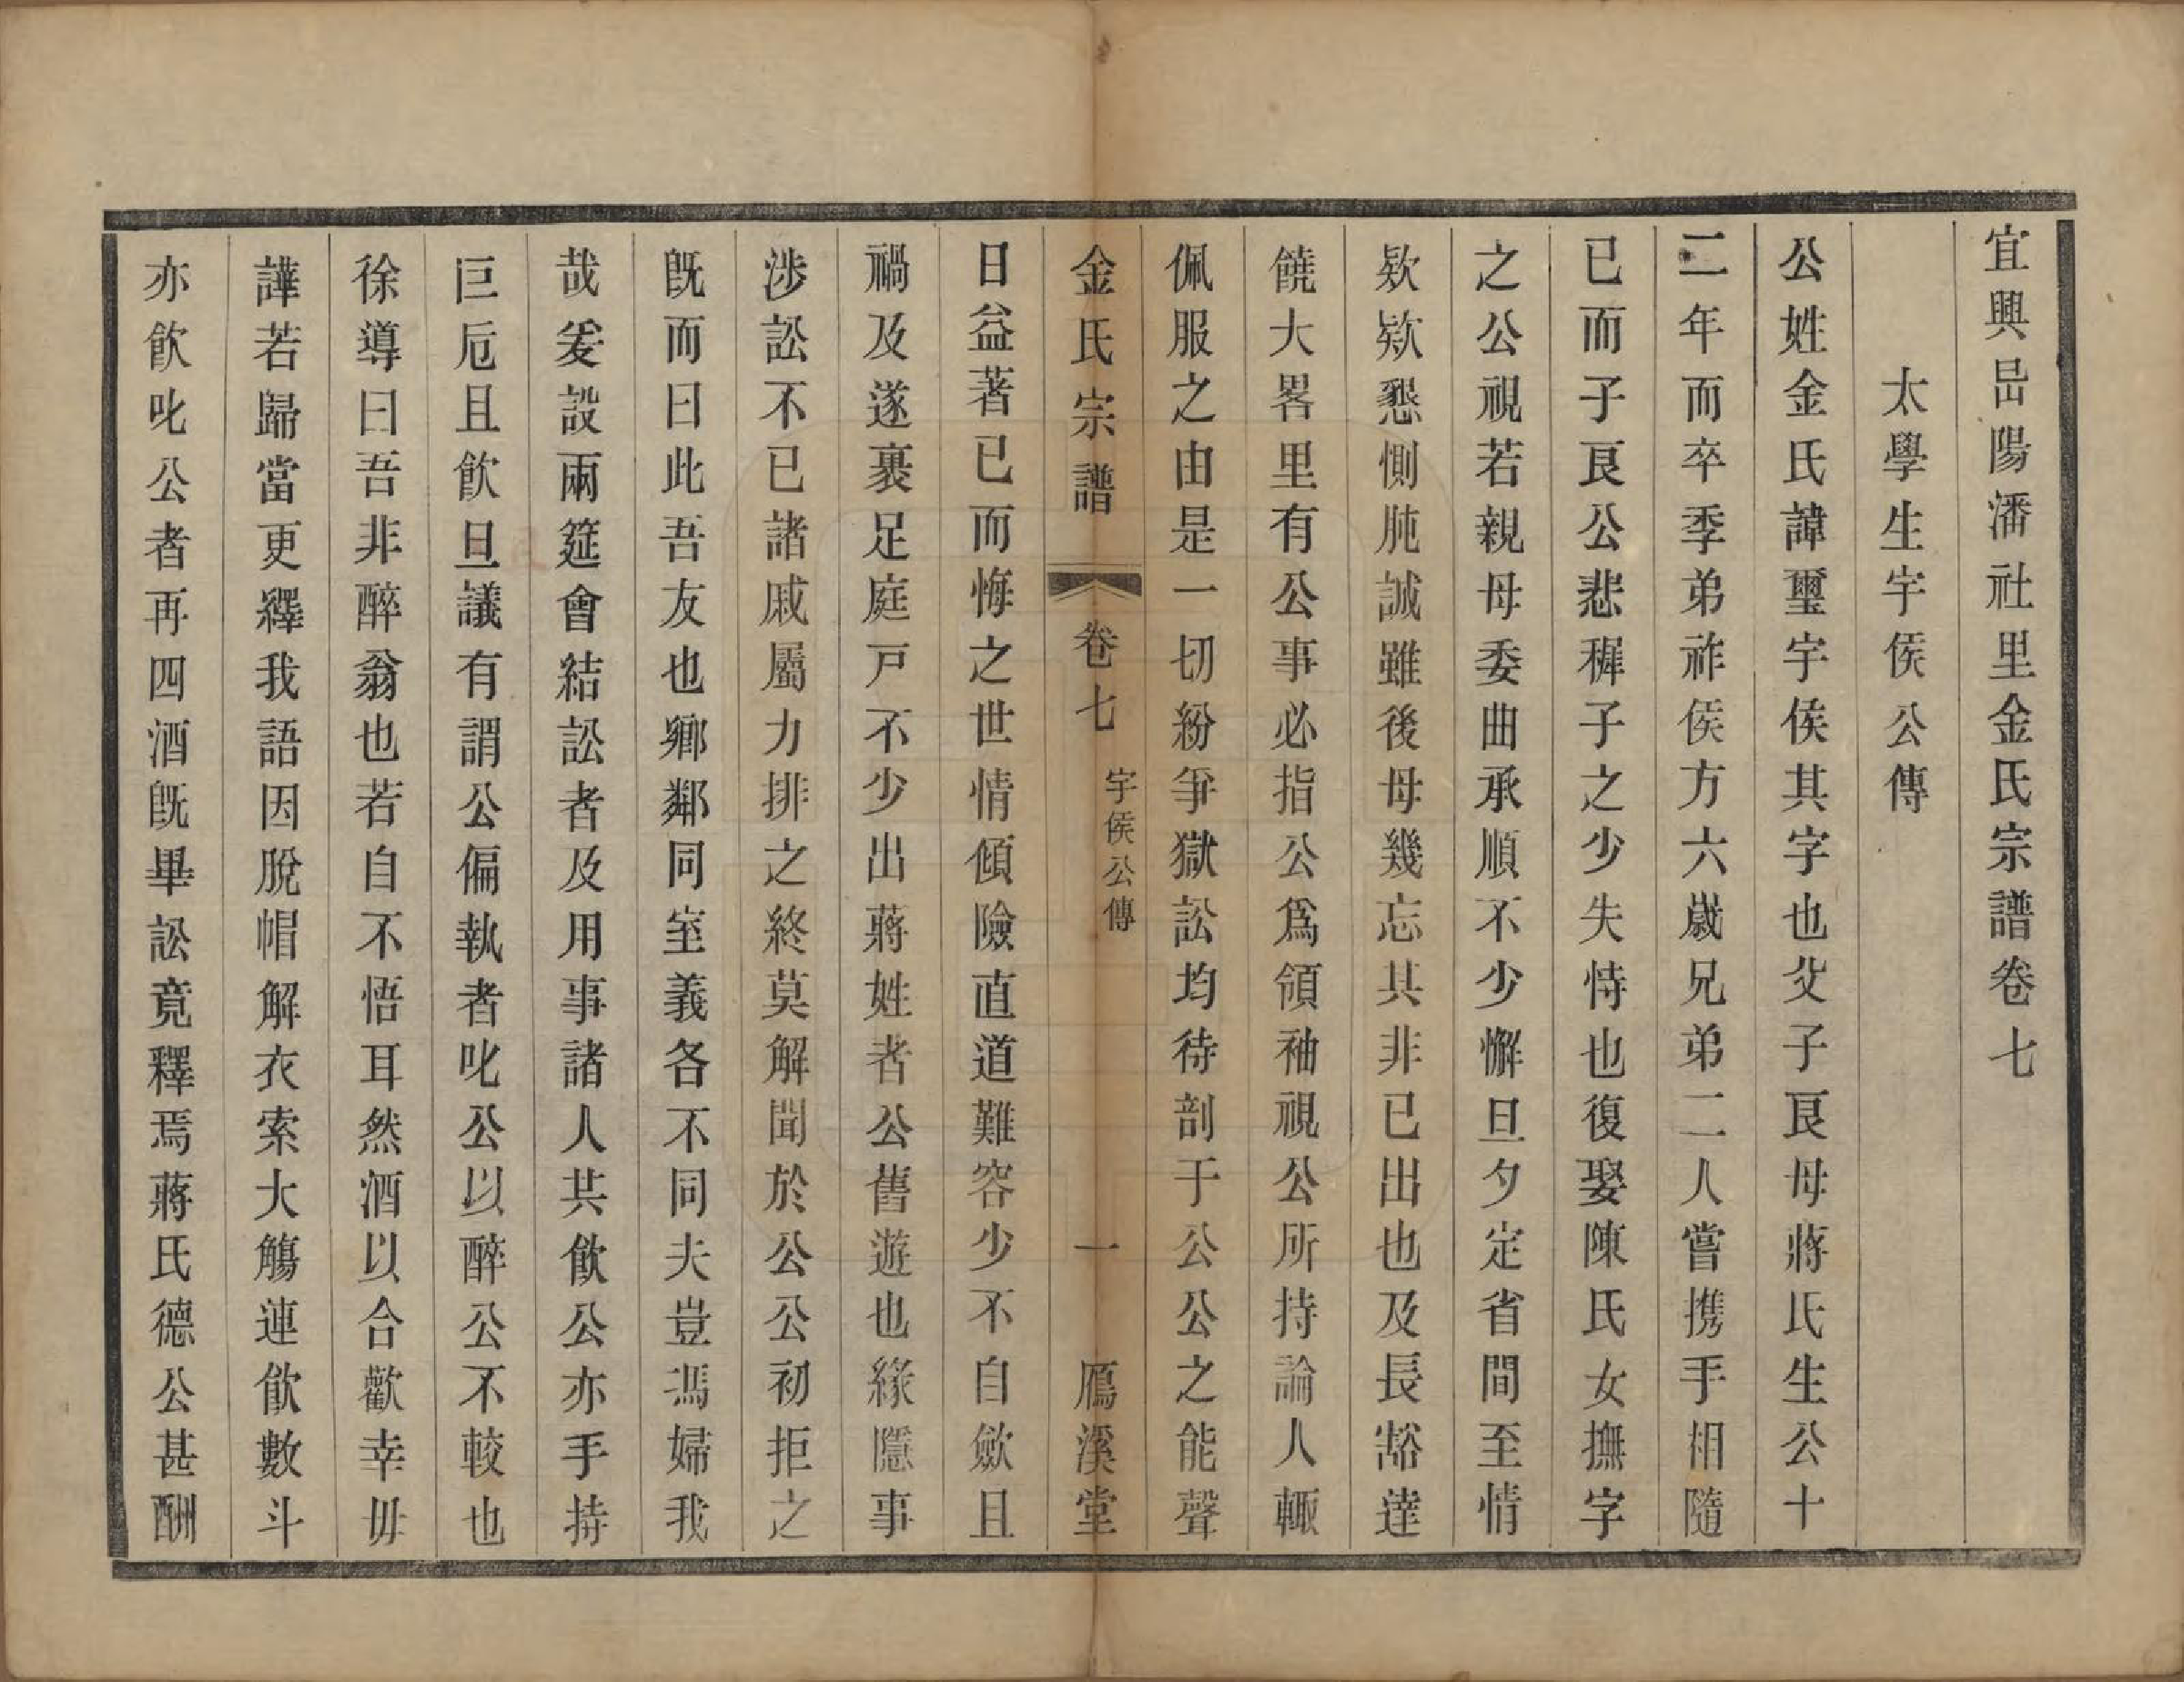 宜興岊陽潘社里金氏宗譜卷七
太學生宇侯公傳
公姓金氏諱璽宇侯其字也父子良母蔣氏生公十
二年而卒季弟祚侯方六歲兄弟二人嘗携手相隨
已而子良公悲穉子之少失恃也復娶陳氏女撫字
之公視若親母委曲承順不少懈旦夕定省間至情
欵欵懇惻肫誠雖後母幾忘其非已出也及長豁達
饒大畧里有公事必指公爲領袖視公所持論人輙
佩服之由是一切紛爭獄訟均待剖于公公之能聲
金氏宗譜 卷七 宇侯公傳 一 鴈溪堂
日益著已而悔之世情傾險直道難容少不自歛且
禍及遂裹足庭戸不少出蔣姓者公舊遊也緣隱事
涉訟不已諸戚屬力排之終莫解聞於公公初拒之
旣而曰此吾友也鄉鄰同室義各不同夫豈馮婦我
哉爰設兩筵會結訟者及用事諸人共飲公亦手持
巨巵且飲旦議有謂公偏執者叱公以醉公不較也
徐導曰吾非醉翁也若自不悟耳然酒以合歡幸毋
譁若歸當更繹我語因脫帽解衣索大觴連飲數斗
亦飲叱公者再四酒旣畢訟竟釋焉蔣氏德公甚酬